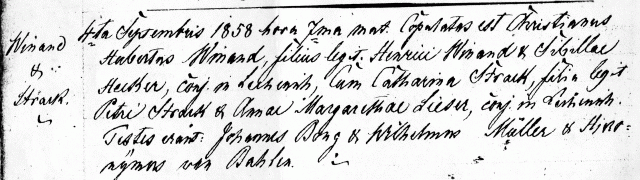 Winand
&
Strack.
4ta Septembris 1858 hora 7ma mat. Copulatus est Christianus
Hubertus Winand, filius legit. Henrici Winand & Sibillae
Hecker, conj. in Lechenih, Cum Catharina Strack, filia legit
Petri Strack & Annae Margarethae Lieser, conj. in Lechenih.
Testes erant: Johannes Bong & Wilhelmus Müller & Hiero-
nÿmus van Bahlen.